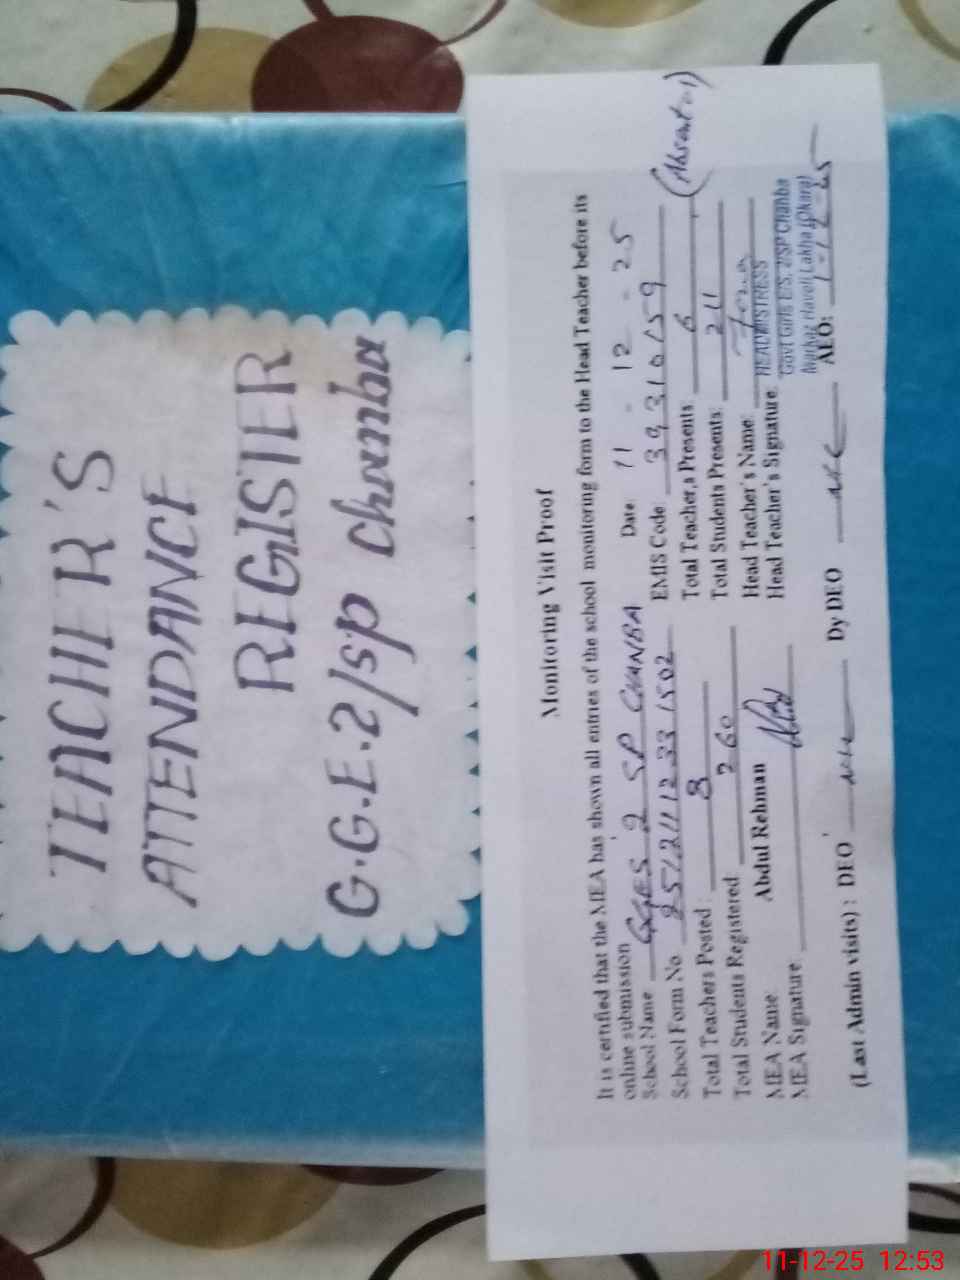 TEACHER'S
ATTENDANCE
REGISTER
G.G.E.2/sp Chanba
Monitoring Visit Proof
It is certified that the MEA has shown all entries of the school monitoring form to the Head Teacher before its
online submission
Date: 11 - 12 - 25
School Name GGES 2 SP CHANBA
EMIS Code: 39310159
School Form No
Total Teacher,s Presents: 6 (Absent=1)
Total Teachers Posted: 8
Total Students Presents: 211
Total Students Registered 260
Head Teacher's Name:
MEA Name: Abdul Rehman
Head Teacher's Signature:
MEA Signature:
HEADMISTRESS
Govt Girls E/S. 2/SP Chanba
Markaz Haveli Lakha (Okara)
(Last Admin visits) : DEO Nil Dy DEO Nil AEO: 1-12-25
11-12-25 12:53